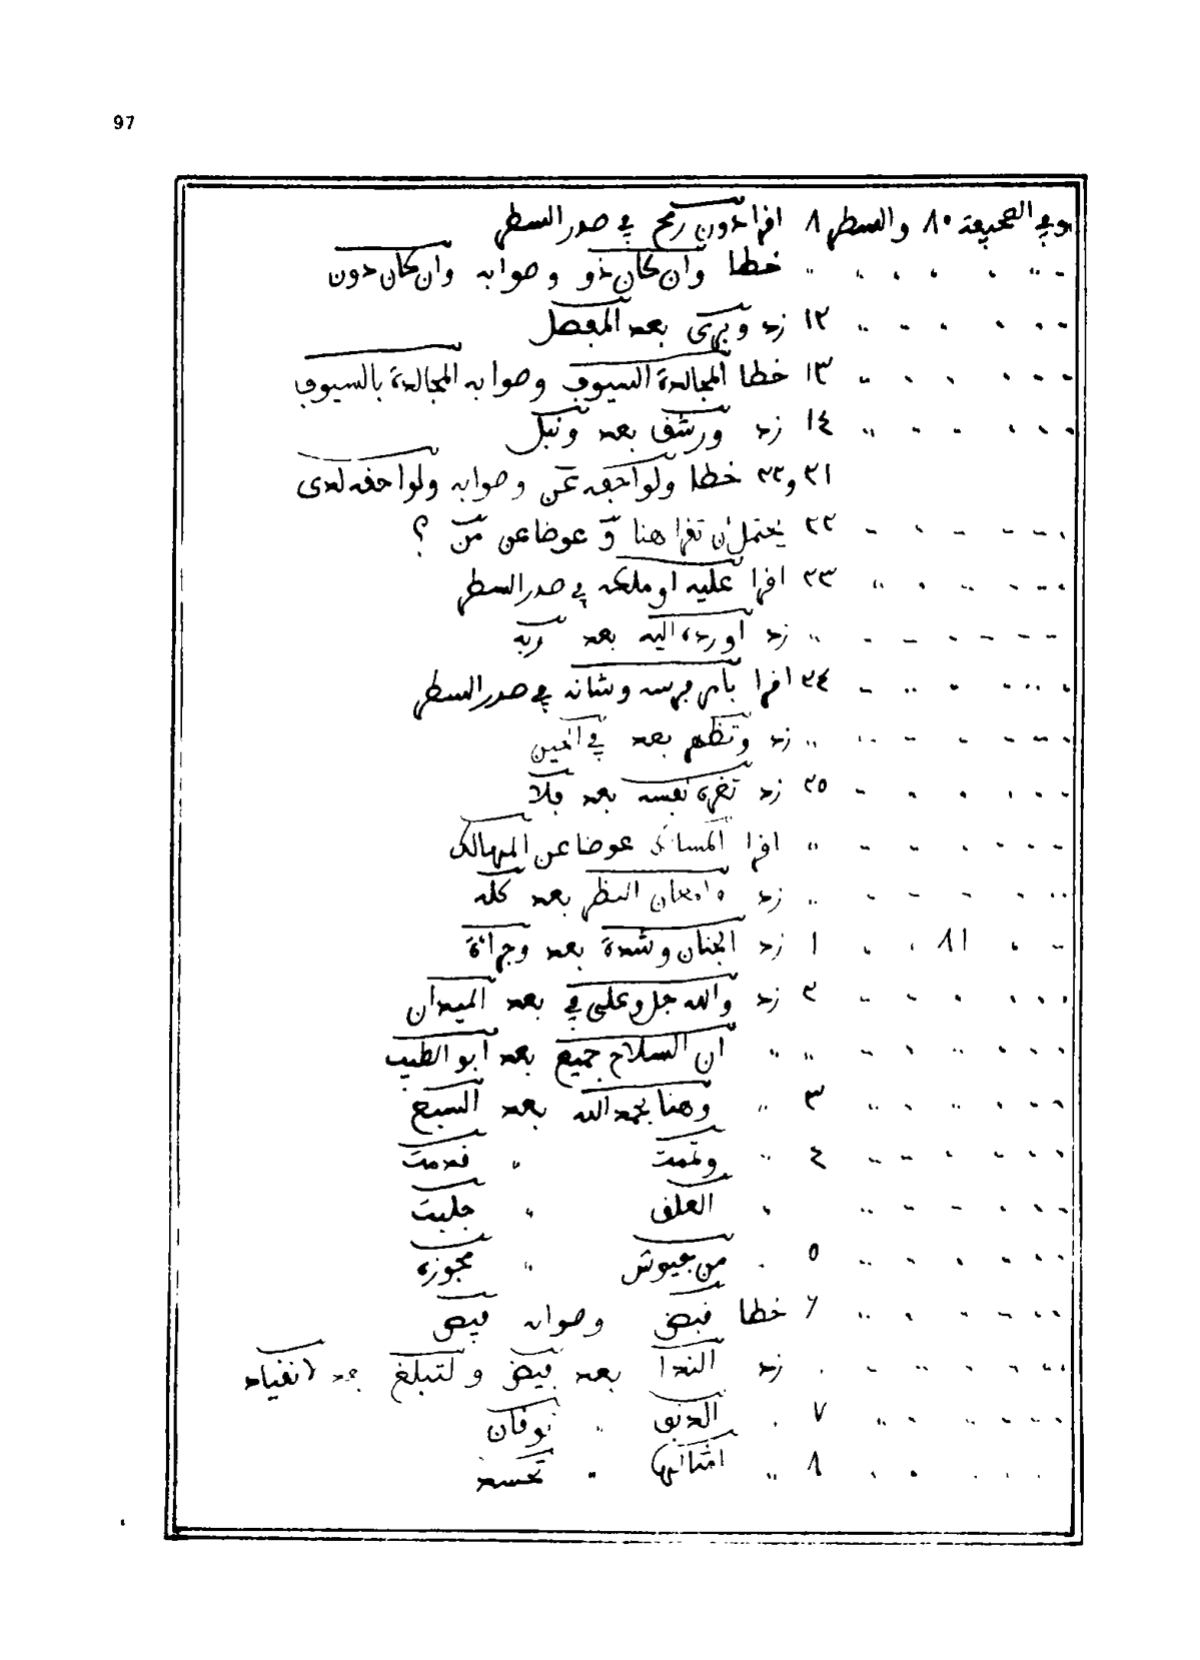 97
وفي الصحيفة ٨٠ والسطر ٨ اقرا دون رمح في صدر السطر
" " " " " " " خطا وان كان ذو وصوابه وان كان دون
" " " " " " ١٢ زد وبرى بعد المفصل
" " " " " " ١٣ خطا المجالدة السيوف وصوابه المجالدة بالسيوف
" " " " " " ١٤ زد ورشق بعد ونبل
٢١ و٢٢ خطا ولواحقه عن وصوابه ولواحقه لدى
" " " " " " ٢٢ يحتمل ان تقرا هنا و عوضا عن من ؟
" " " " " " ٢٣ اقرا عليه او ملكه في صدر السطر
" " " " " " " زد اورده اليه بعد وبه
" " " " " " ٢٤ اقرا بامر فرسه وشانه في صدر السطر
" " " " " " " زد وتظهر بعد في الحين
" " " " " " ٢٥ زد تغره نفسه بعد فلا
" " " " " " " اقرا المسالك عوضا عن المهالك
" " " " " " " زد وامعان النظر بعد كله
" " ٨١ " " ١ زد الجنان وشدة بعد وجراة
" " " " " " ٢ زد والله جل وعلى في بعد الميدان
" " " " " " " " ان السلاح جميع بعد ابو الطيب
" " " " " " ٣ " وهنا بحمد الله بعد السبع
" " " " " " ٤ " وتممت " قدمت
" " " " " " " العلف " جلبت
" " " " " " ٥ " من جيوش " محوزه
" " " " " " ٦ خطا فبض وصوابه فيض
" " " " " " " زد الندا بعد فيض ولتبلغ بعد
" " " " " " ٧ " الدنو " نوفان
" " " " " " ٨ " امثالها " تحسد